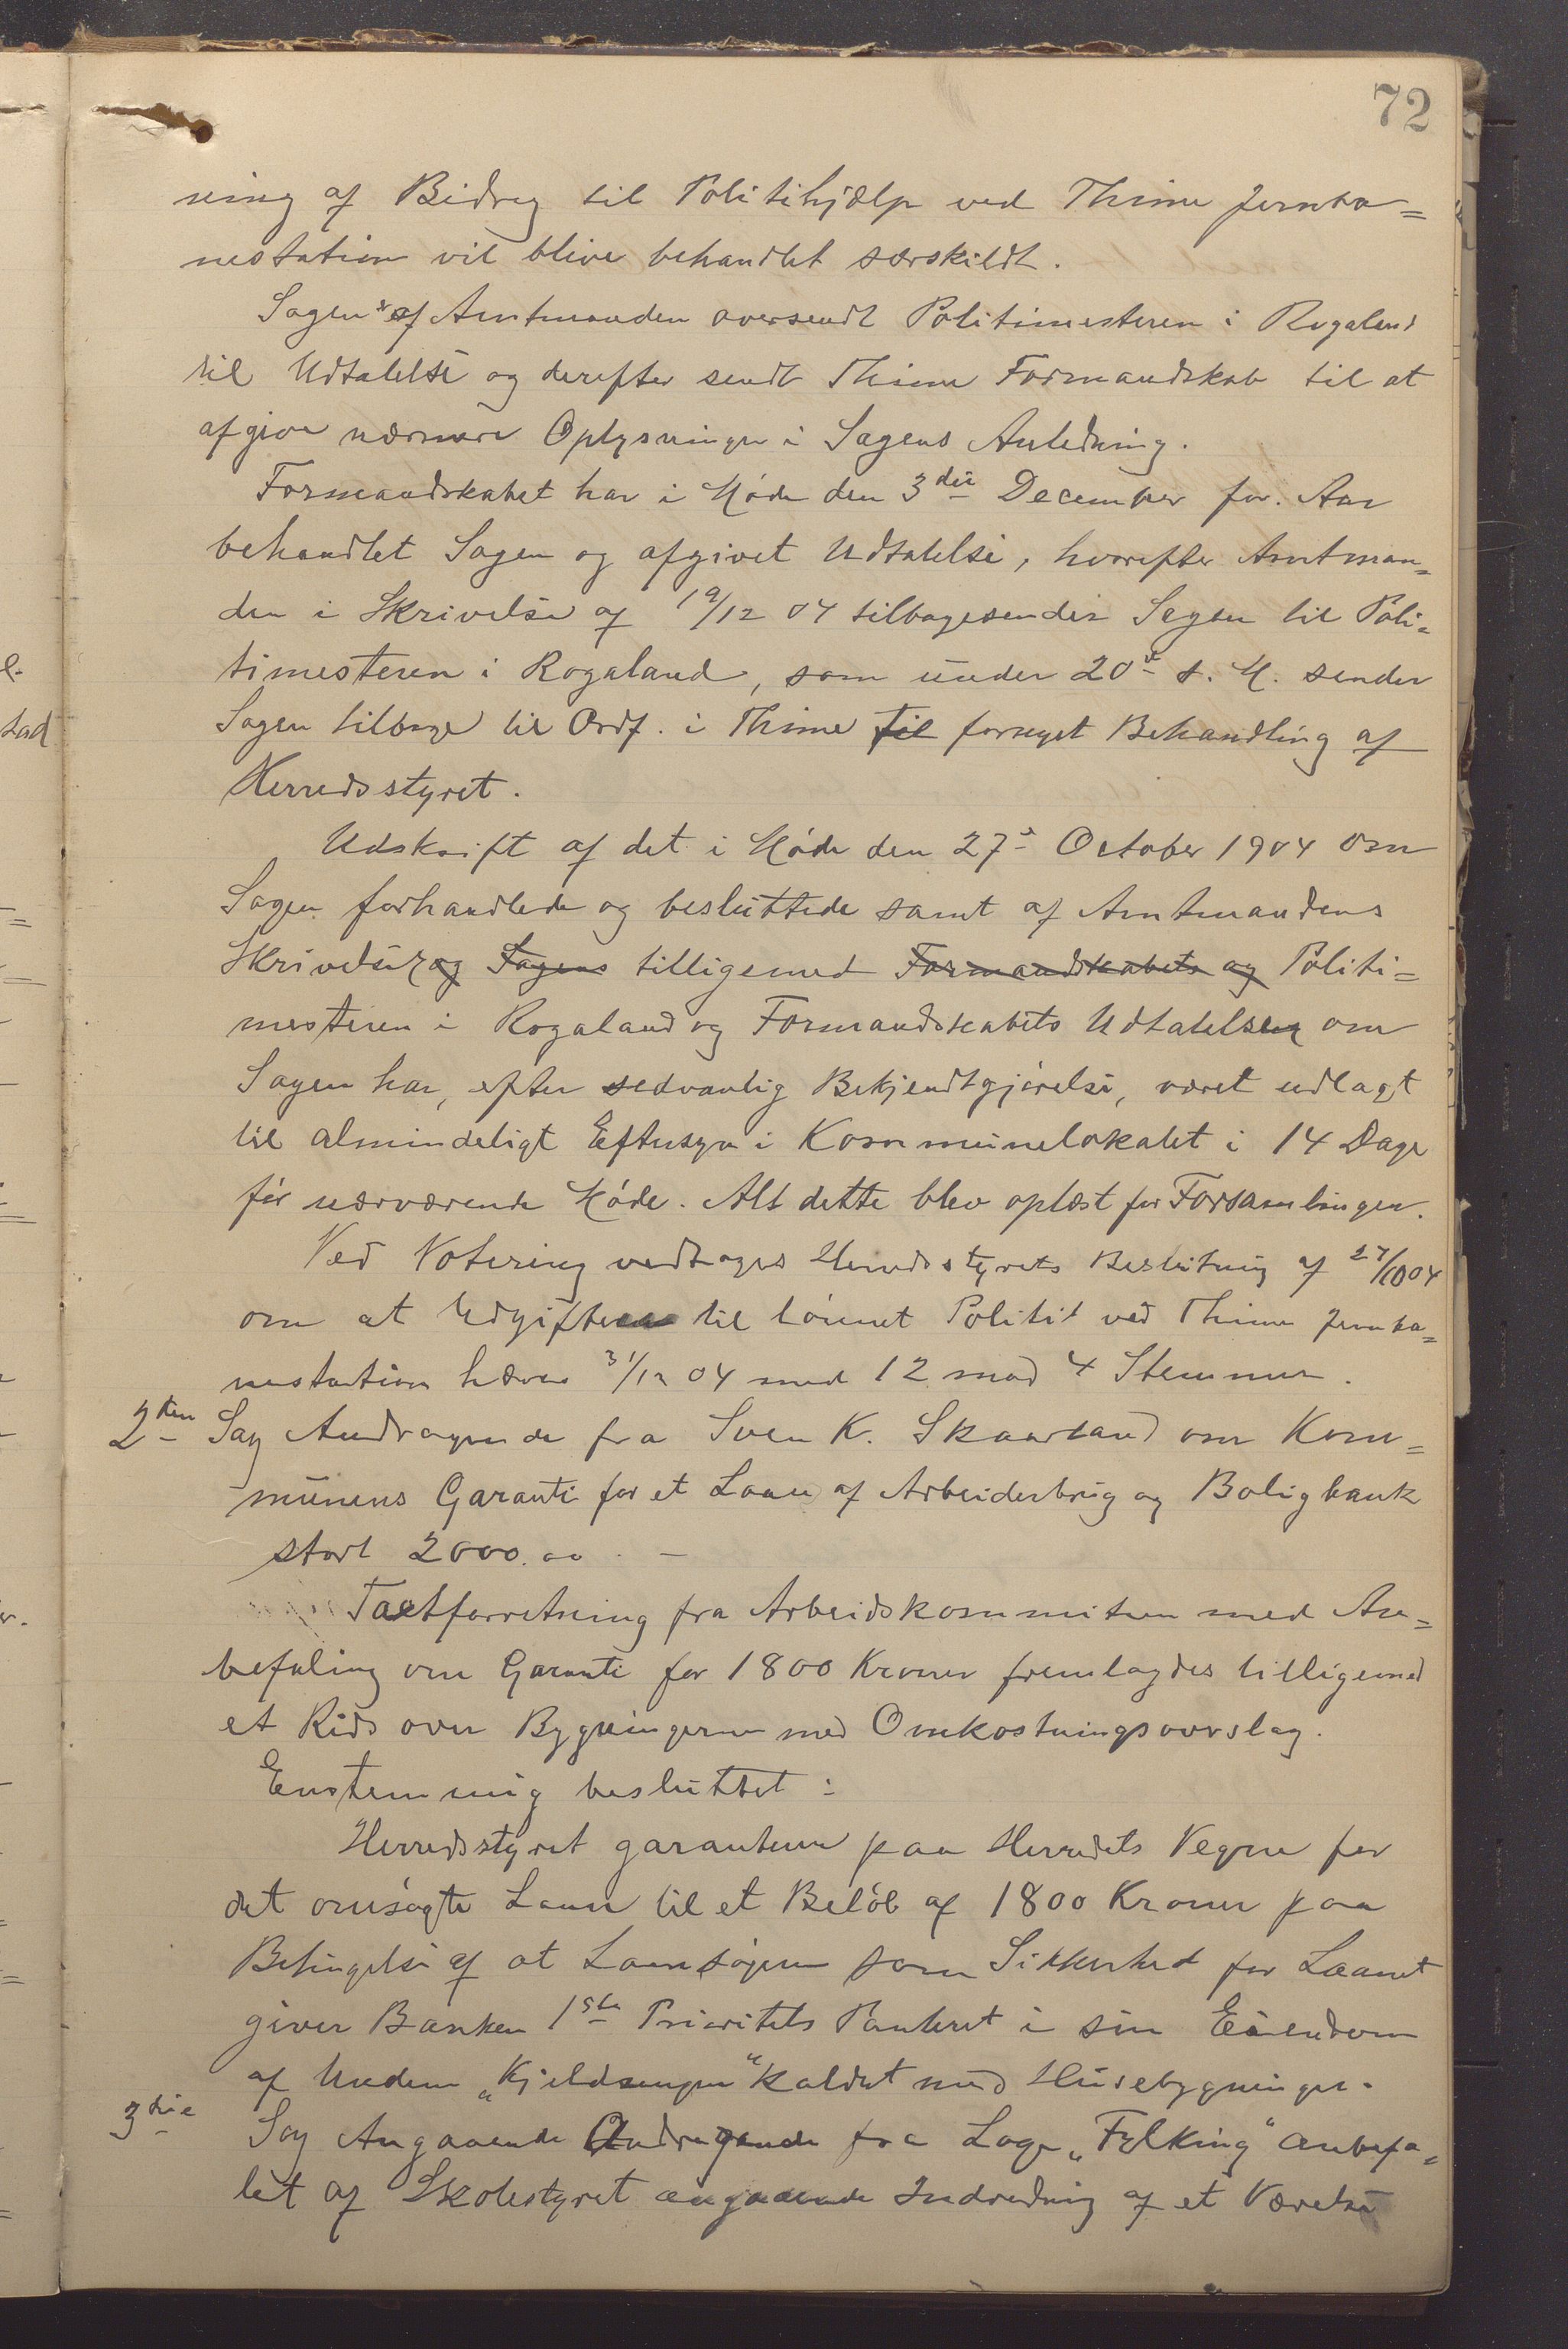 72
ning af Bidrag til Politihjælp ved Thime Jernba=
nestation vil blive behandlet særskildt.
Sagen er af Amtmanden oversendt Politimesteren i Rogaland
til Udtalelse og derefter sendt Thime Formandskab til at
afgive nærmere Oplysninger i Sagens Anledning.
Formandskabet har i Møde den 3die December for. Aar
behandlet Sagen og afgivet Udtalelse, hvorefter Amtman=
den i Skrivelse af 19/12 04 tilbagesender Sagen til Poli=
timesteren i Rogaland, som under 20de s. M. sender
Sagen tilbage til Ordf. i Thime til fornyet Behandling af
Herredsstyret.
Udskrift af det i Møde den 27de October 1904 om
Sagen forhandlede og besluttede samt af Amtmandens
Skrivelser og Sagens tilligemed Formandskabets og Politi=
mesteren i Rogaland og Formandskabets Udtalelser om
Sagen har, efter sedvanlig Bekjendtgjørelse, været udlagt
til almindeligt Eftersyn i Kommunelokalet i 14 Dage
før nærværende Møde. Alt dette blev oplæst for Forsamlingen.
Ved Votering vedtages Herredsstyrets Beslutning af 27/10 04
om at Udgifterne til lønnet Politi ved Thime Jernba=
nestation hæves 31/12 04 med 12 mod 4 Stemmer.
2den Sag Andragende fra Sven K. Skaarland om Kom=
munens Garanti for et Laan af Arbeiderbrug og Boligbank
stort 2000.00. —
Taxtforretning fra Arbeidskommiteen med An=
befaling om Garanti for 1800 Kroner fremlagdes tilligemed
et Rids over Bygningerne med Omkostningsoverslag.
Enstemmig besluttet:
Herredsstyret garanterer paa Herredets Vegne for
det omsøgte Laan til et Beløb af 1800 Kroner paa
Betingelse af at Laansøgeren som Sikkerhed for Laanet
giver Banken 1ste Prioritets Panteret i sin Eiendom
af Undem „Kjeldsengen" kaldet med Husebygninger.
3die Sag Angaaende Andragende fra Loge „Fylking" anbefa=
let af Skolestyret angaaende Indredning af et Værelse